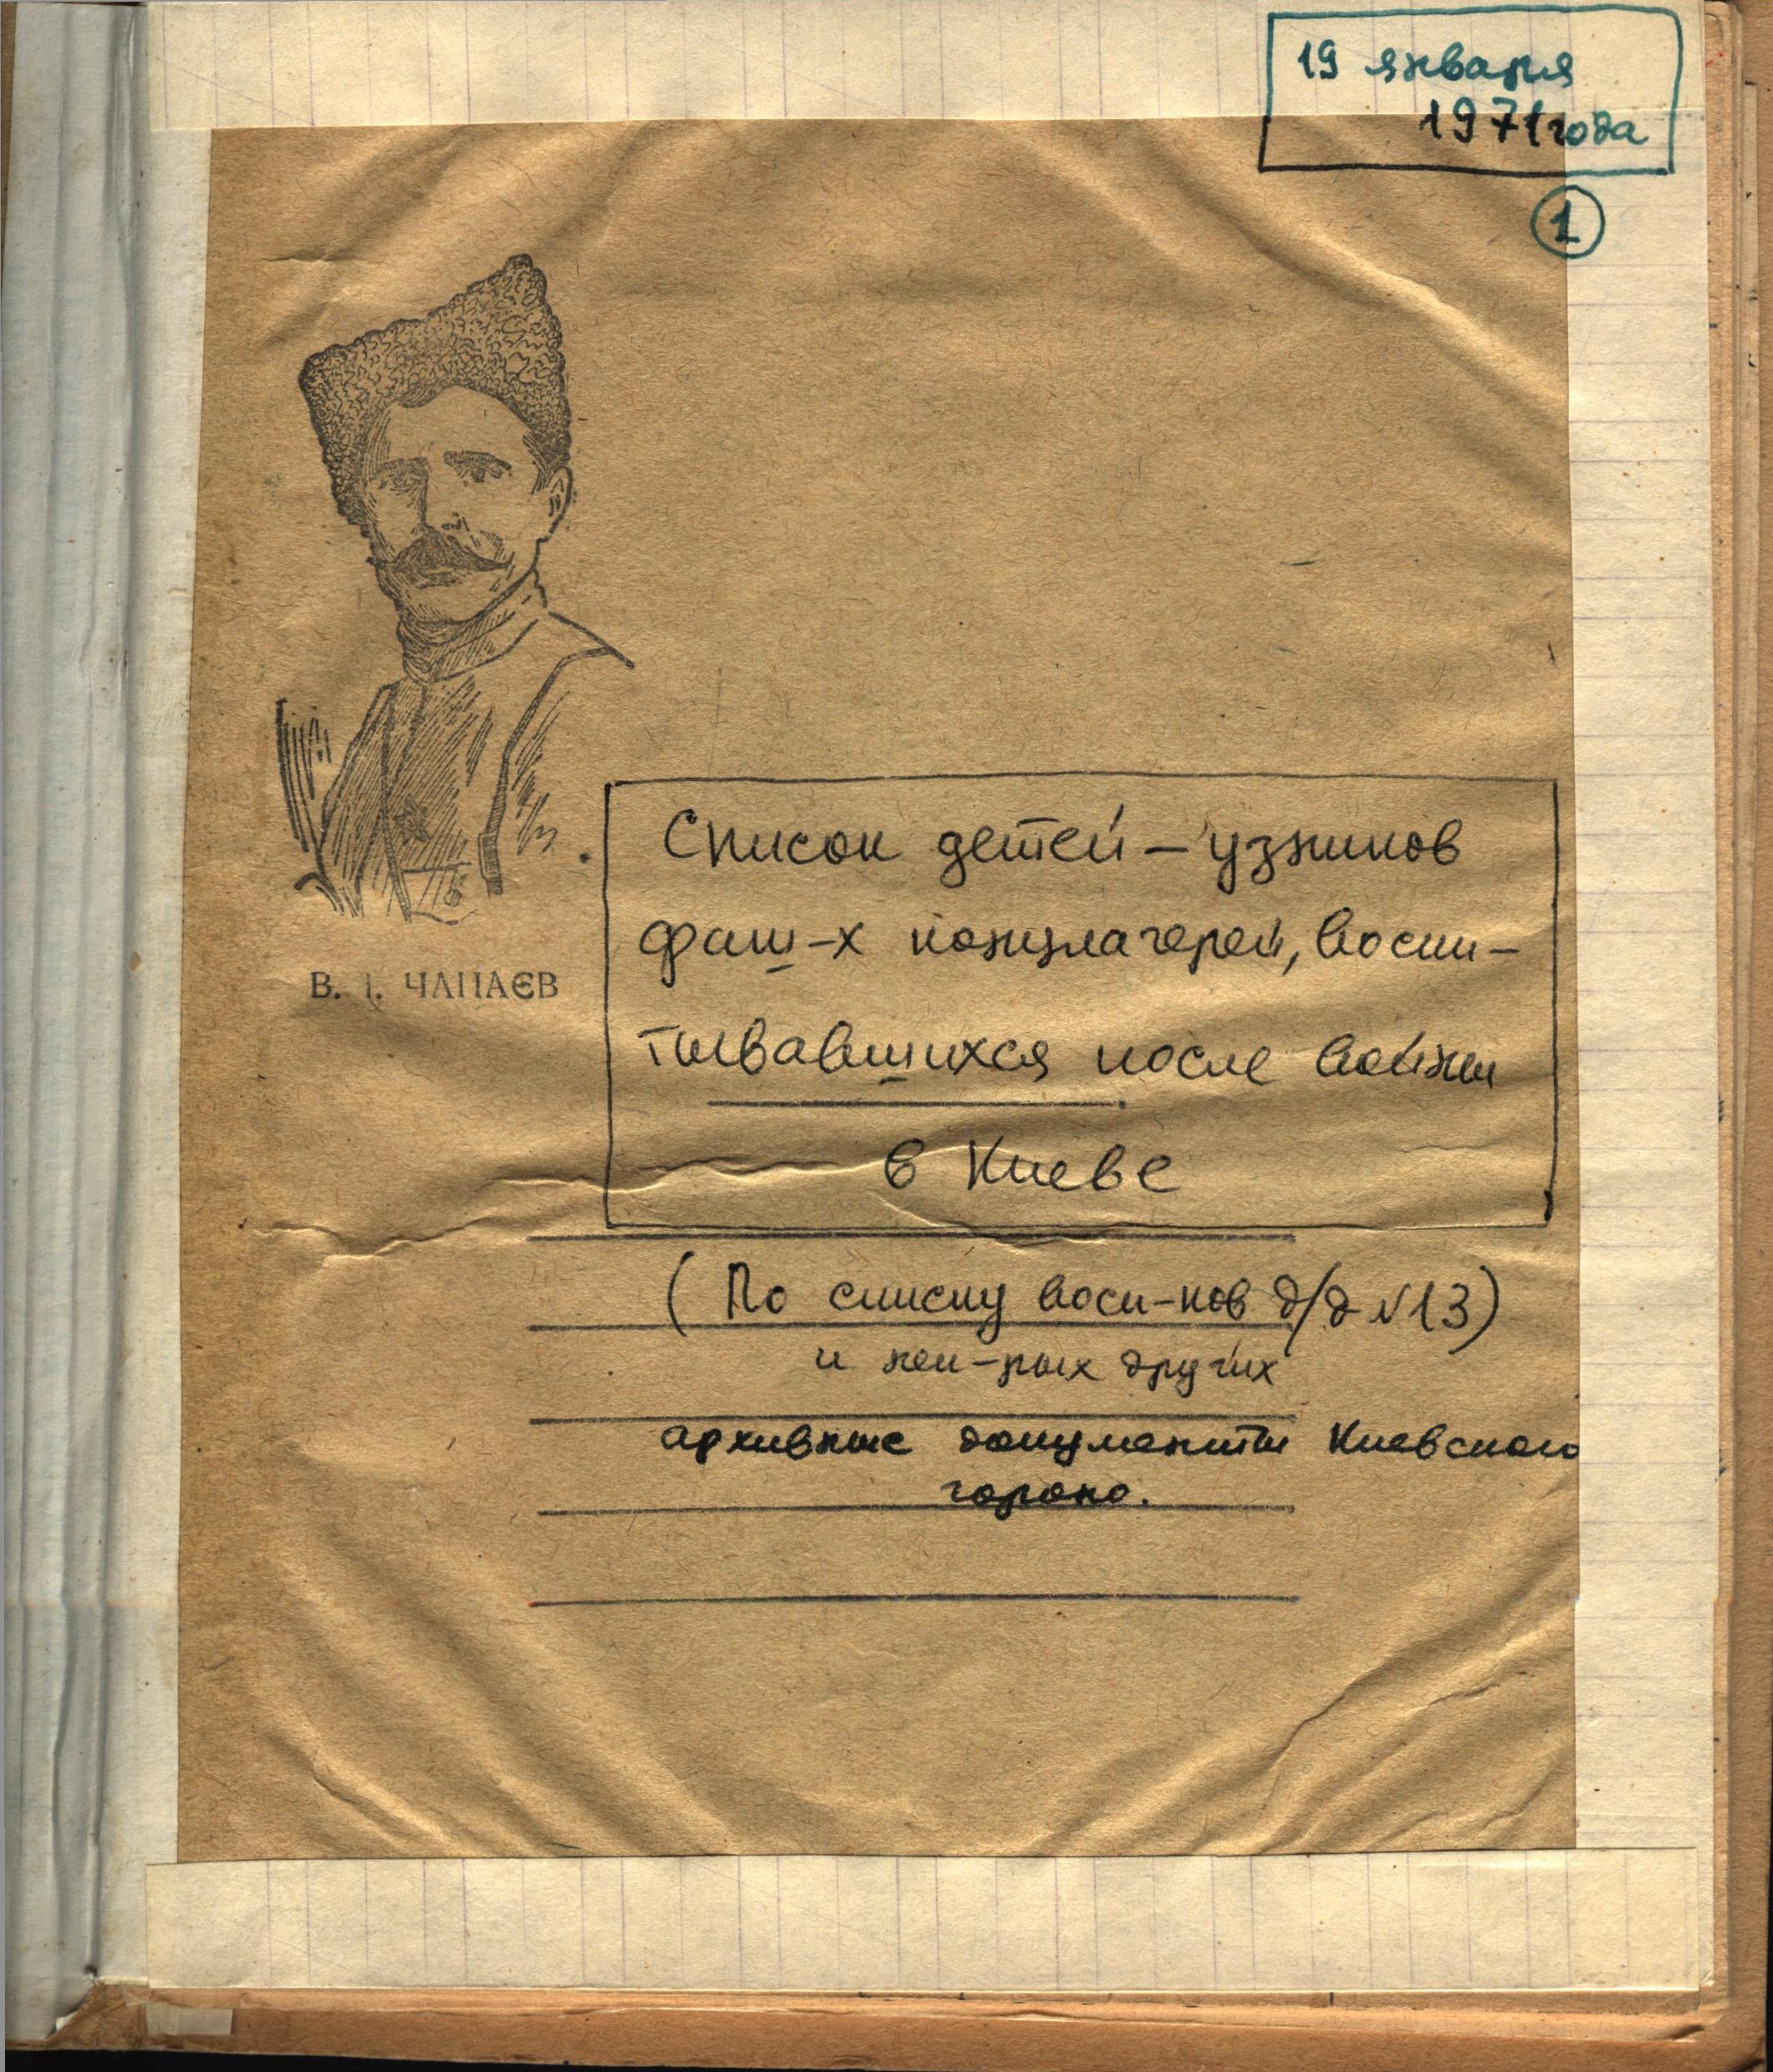 19 января
1971 года
1
В. І. ЧАПАЄВ
Список детей – узников
фаш-х концлагерей, воспи-
тывавшихся после войны
в Киеве
(По списку восп-ков д/д №13)
и нек-рых других
архивные документы Киевского
гороно.